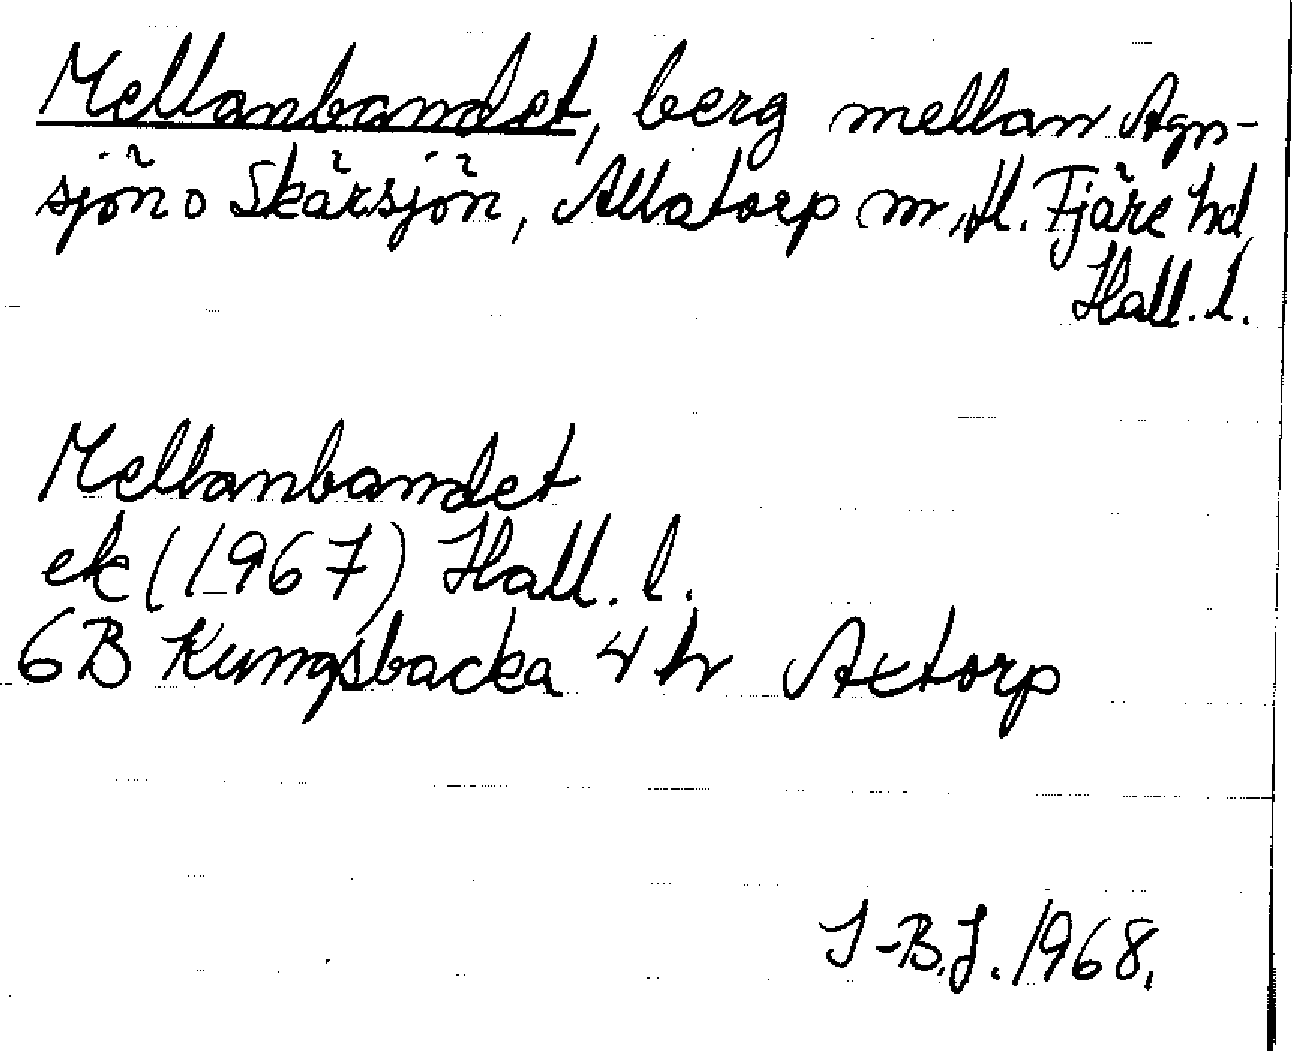 Mellanbandet, berg mellan Agn-
sjön o Skärsjön, Allatorp m, fl. Fjäre hd
Hall. l.
Mellanbandet
ek (1967) Hall. l.
6B Kungsbacka 4 h Axtorp
I-B.J. 1968.